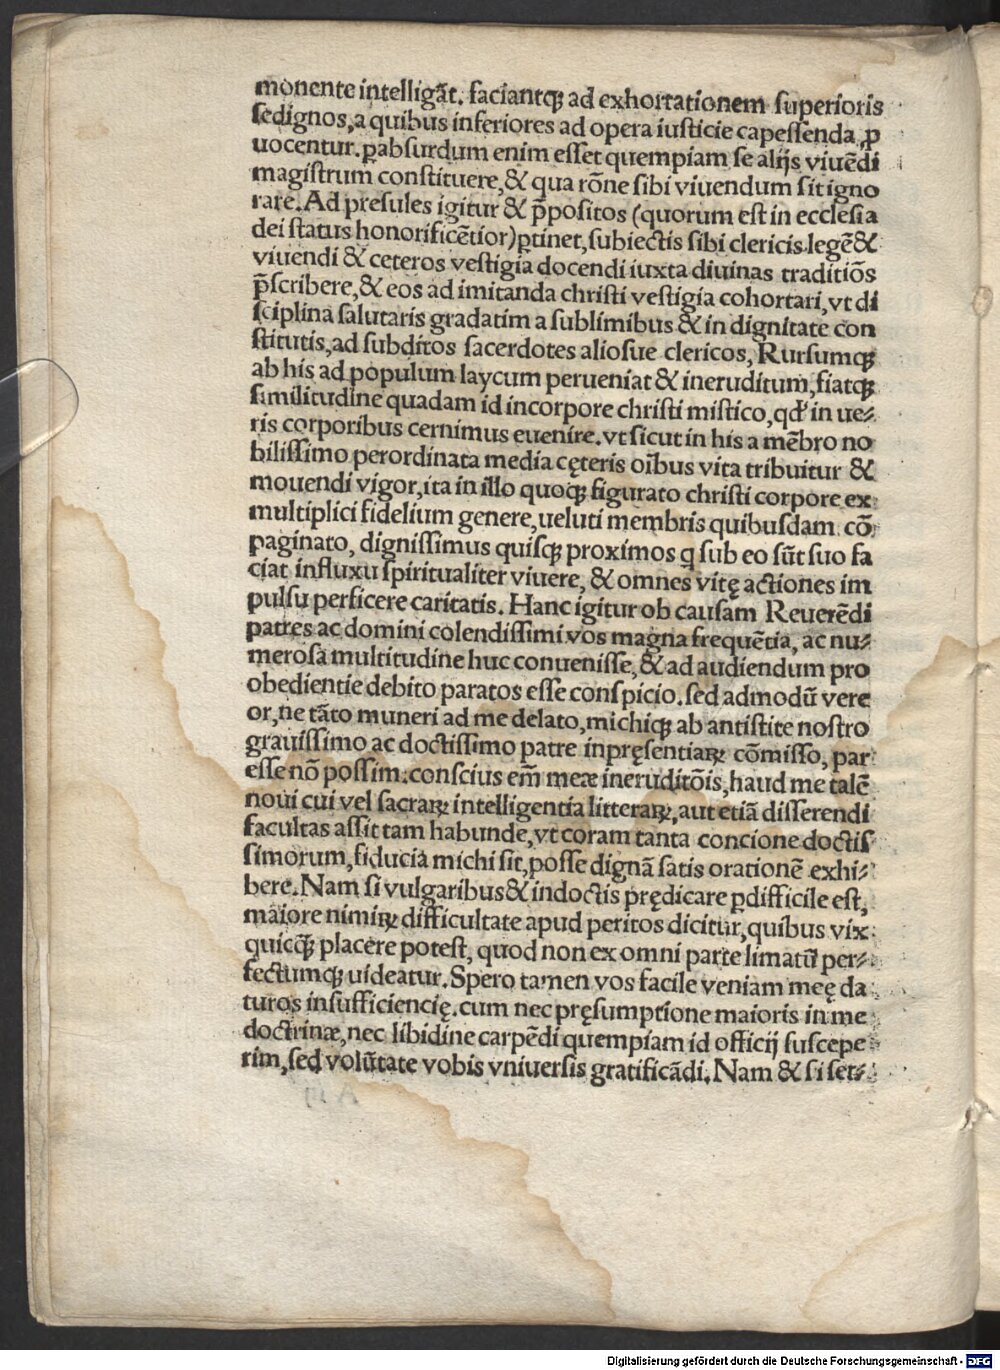 monente intelligãt. faciantqꝫ ad exhortationem superioris
se dignos, a quibus inferiores ad opera iusticie capessenda ꝓ
uocentur. ꝑabsurdum enim esset quempiam se alijs viuẽdi
magistrum constituere, & qua rõne sibi viuendum sit igno
rare. Ad presules igitur & p̃positos (quorum est in ecclesia
dei status honorificẽtior) ꝑtinet, subiectis sibi clericis legẽ &
viuendi & ceteros vestigia docendi iuxta diuinas traditiõs
p̃scribere, & eos ad imitanda christi vestigia cohortari, vt di
sciplina salutaris gradatim a sublimibus & in dignitate con
stitutis, ad subditos sacerdotes aliosue clericos, Rursumqꝫ
ab his ad populum laycum perueniat & ineruditum, fiatqꝫ
similitudine quadam id in corpore christi mistico, qd' in ue⸗
ris corporibus cernimus euenire. vt sicut in his a mẽbro no
bilissimo perordinata media cęteris oĩbus vita tribuitur &
mouendi vigor, ita in illo quoqꝫ figurato christi corpore ex
multiplici fidelium genere, ueluti membris quibusdam cõ
paginato, dignissimus quisqꝫ proximos q sub eo sũt suo fa
ciat influxu spiritualiter viuere, & omnes vitę actiones im
pulsu perficere caritatis. Hanc igitur ob causam Reuerẽdi
patres ac domini colendissimi vos magna frequẽtia, ac nu⸗
merosa multitudine huc conuenisse, & ad audiendum pro
obedientie debito paratos esse conspicio. sed admodũ vere
or, ne tãto muneri ad me delato, michiqꝫ ab antistite nostro
grauissimo ac doctissimo patre in pręsentiaꝝ cõmisso, par
esse nõ possim. conscius em̃ meæ ineruditõis, haud me talẽ
noui cui vel sacraꝝ intelligentia litteraꝝ, aut etiã disserendi
facultas assit tam habunde, vt coram tanta concione doctis
simorum, fiducia michi sit, posse dignã satis orationẽ exhi⸗
bere. Nam si vulgaribus & indoctis prędicare ꝑdifficile est,
maiore nimiꝝ difficultate apud peritos dicitur, quibus vix
quicqꝫ placere potest, quod non ex omni parte limatũ per⸗
fectumqꝫ uideatur. Spero tamen vos facile veniam meę da
turos insufficiencię. cum nec pręsumptione maioris in me
doctrinæ, nec libidine carpẽdi quempiam id officij suscepe
rim, sed volũtate vobis vniuersis gratificãdi. Nam & si ser⸗
Digitalisierung gefördert durch die Deutsche Forschungsgemeinschaft - DFG